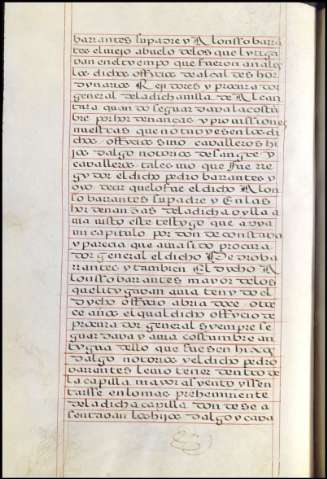 barrantes su padre y Alonsso barra
tes el viejo abuelo de los que lytiga
van en el tyempo que fueron anales
los dichos offycios de alcaldes hor
dynarios Regidores y procura dor
general de la dicha villa de Alcan
tara quando se guardava la costu
bre por hordenanças y provisiones
nuestras que no tuvyesen los di
chos offycios sino cavalleros hi
jos dalgo notorios de sangre y
cavalleros tales uno que fue rre
gydor el dicho pedro barrantes y
oyo decir que lo fue el dicho Alon
so barantes su padre y En las
hordenanzas de la dicha villa a
via visto este testygo que avya
un capitulo por donde constava
y parecia que avia sido procura
dor general el dicho Pedro ba
rrantes y tambien El dycho A
lonsso barrantes mayor de los
que lityguavan avia tenydo el
dycho officio abria doce o tre
ce años el qual dicho officio de
procurador general syempre se
guardava y avia costumbre an
tygua dello que fuesen hijos
dalgo notorios y el dicho pedro
barrantes le vio tener dentro de
la capilla mayor al
tarsse en lo mas preheminente
de la dicha capilla donde se a
sentavan los hijos dalgo y cava